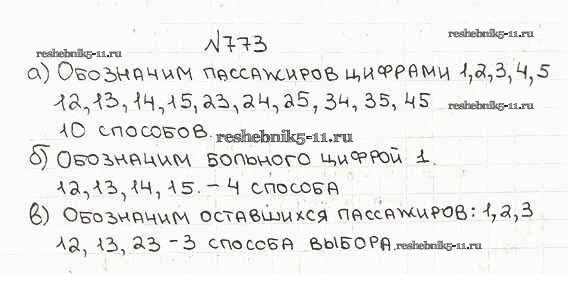 №773
reshebnik5-11.ru
reshebnik5-11.ru
а) Обозначим пассажиров цифрами 1,2,3,4,5
12, 13, 14, 15, 23, 24, 25, 34, 35, 45
reshebnik5-11.ru
10 способов.
reshebnik5-11.ru
б) Обозначим больного цифрой 1.
12, 13, 14, 15. – 4 способа
в) Обозначим оставшихся пассажиров: 1, 2, 3
12, 13, 23 – 3 способа выбора.
reshebnik5-11.ru